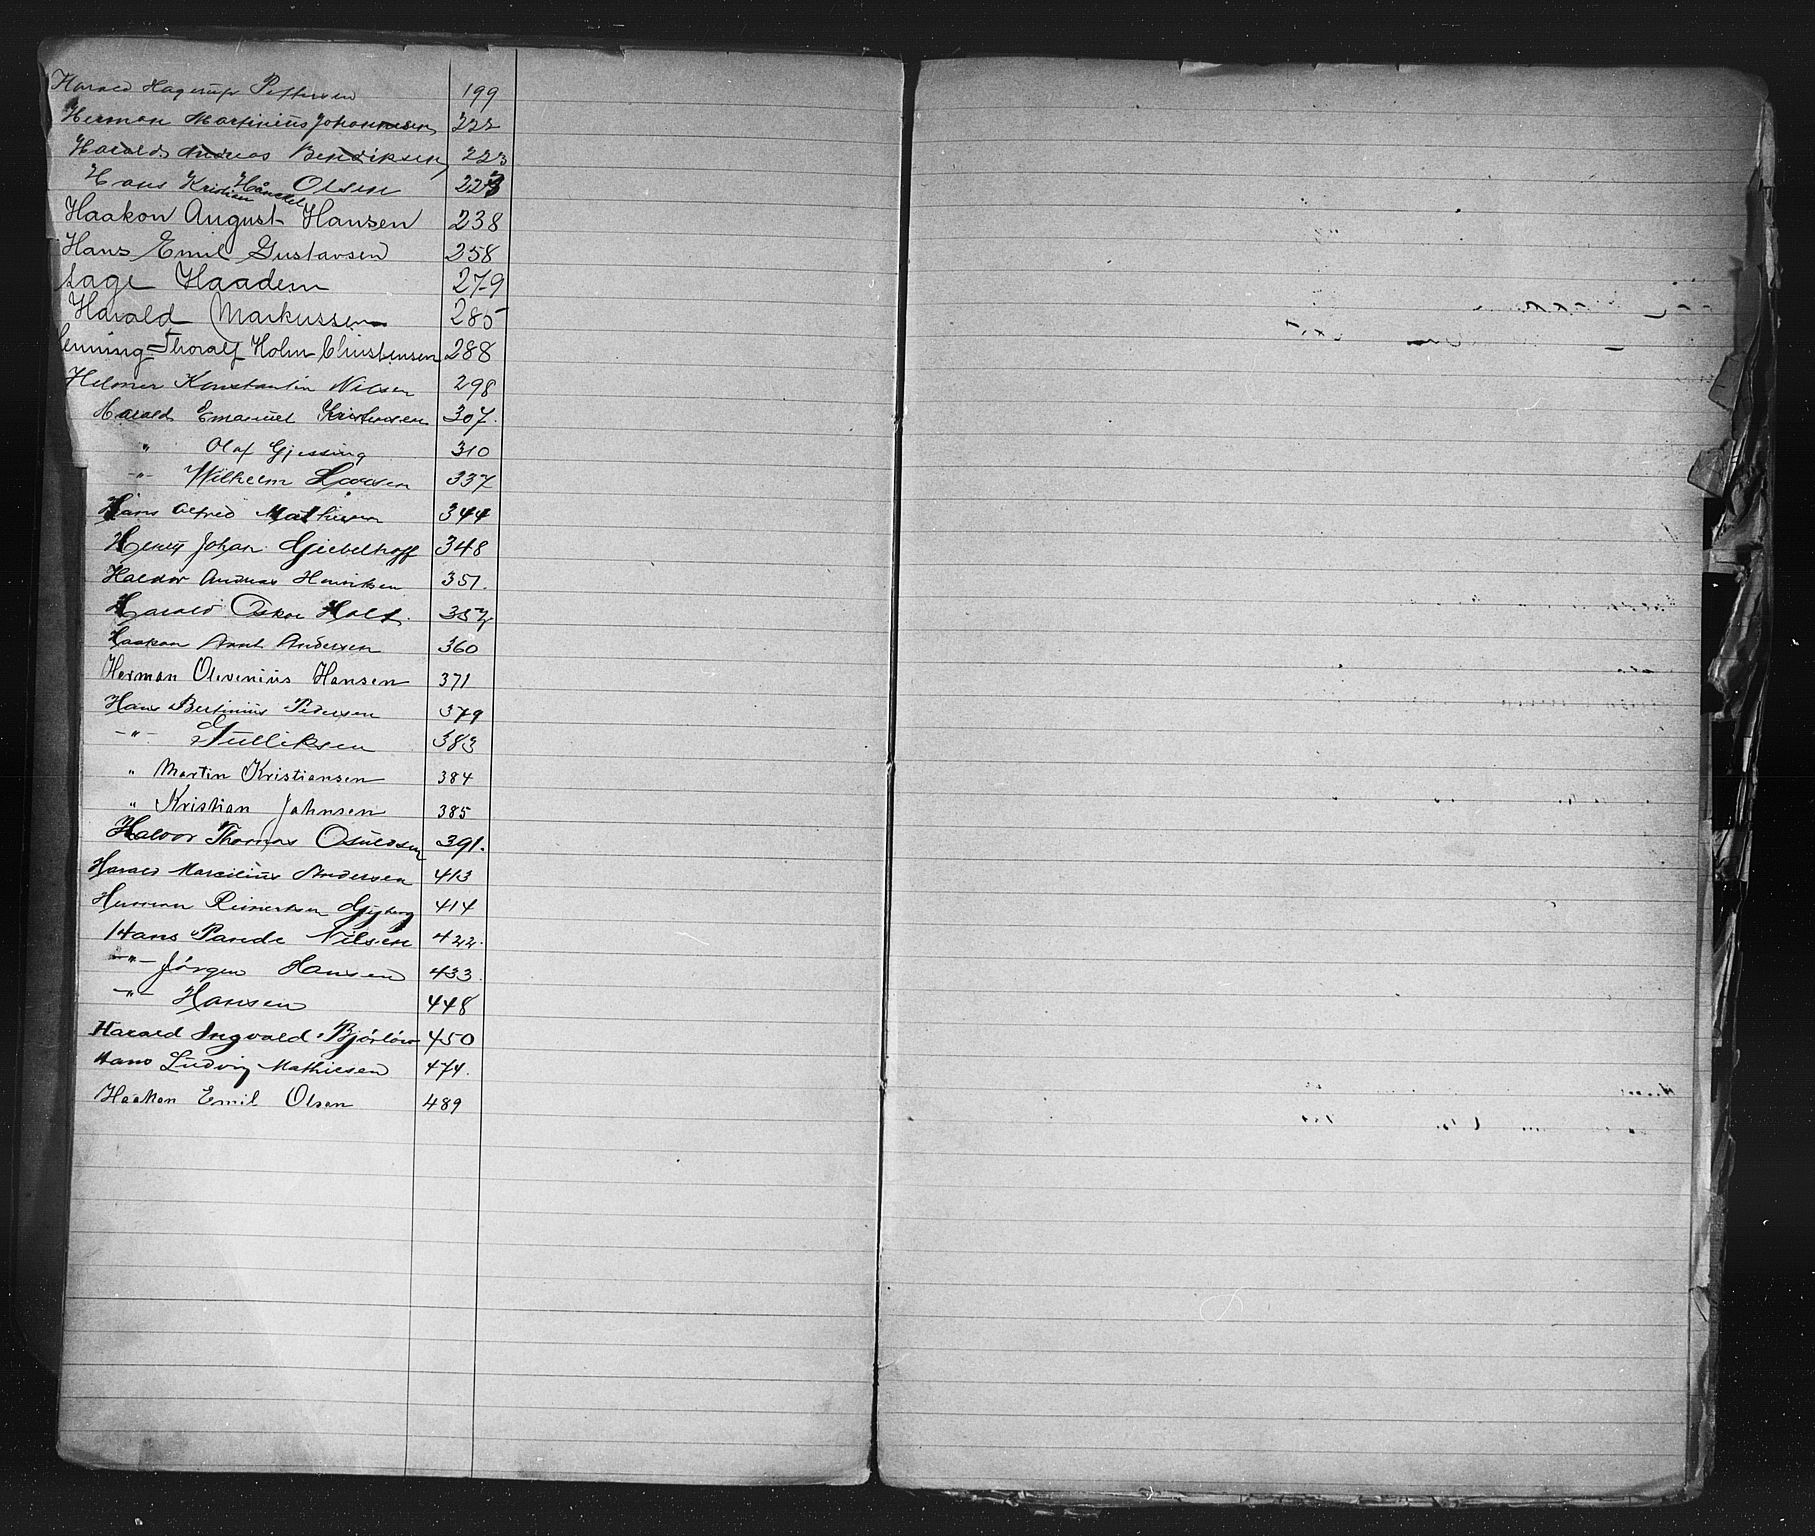 Harald Hagerup Pettersen 199
Herman Martinius Johannesen 222
Harald Andreas Bendiksen 223
Hans Kristian Olsen 223
Haakon August Hansen 238
Hans Emil Gustavsen 258
Aage Haadem 279
Harald Markussen 285
Henning Thoralf Holm Christensen 288
Helmer Konstantin Nilsen 298
Harald Emanuel Kristensen 307.
" Olaf Gjessing 310
-"- Wilhelm Larsen 337
Hans Alfred Mathisen 344
Henry Johan Giebelhoff 348
Haldor Andreas Henriksen 351.
Harald Oskar Holt. 357
Haakon Arnt Andersen 360
Herman Olevenius Hansen 371
Hans Bertinius Pedersen 379
-"- Gulliksen 383
" Martin Kristiansen 384
" Kristian Johnsen 385
Halvor Thomas Osuldsen 391.
Harald Marcelius Andersen 413
Herman Reinertsen 414
Hans Parede Nilsen 422.
-"- Jörgen Hansen 433.
-"- Hansen 448
Harald Ingvald Bjørløw 450
Hans Ludvig Mathiesen 474.
Haakon Emil Olsen 489